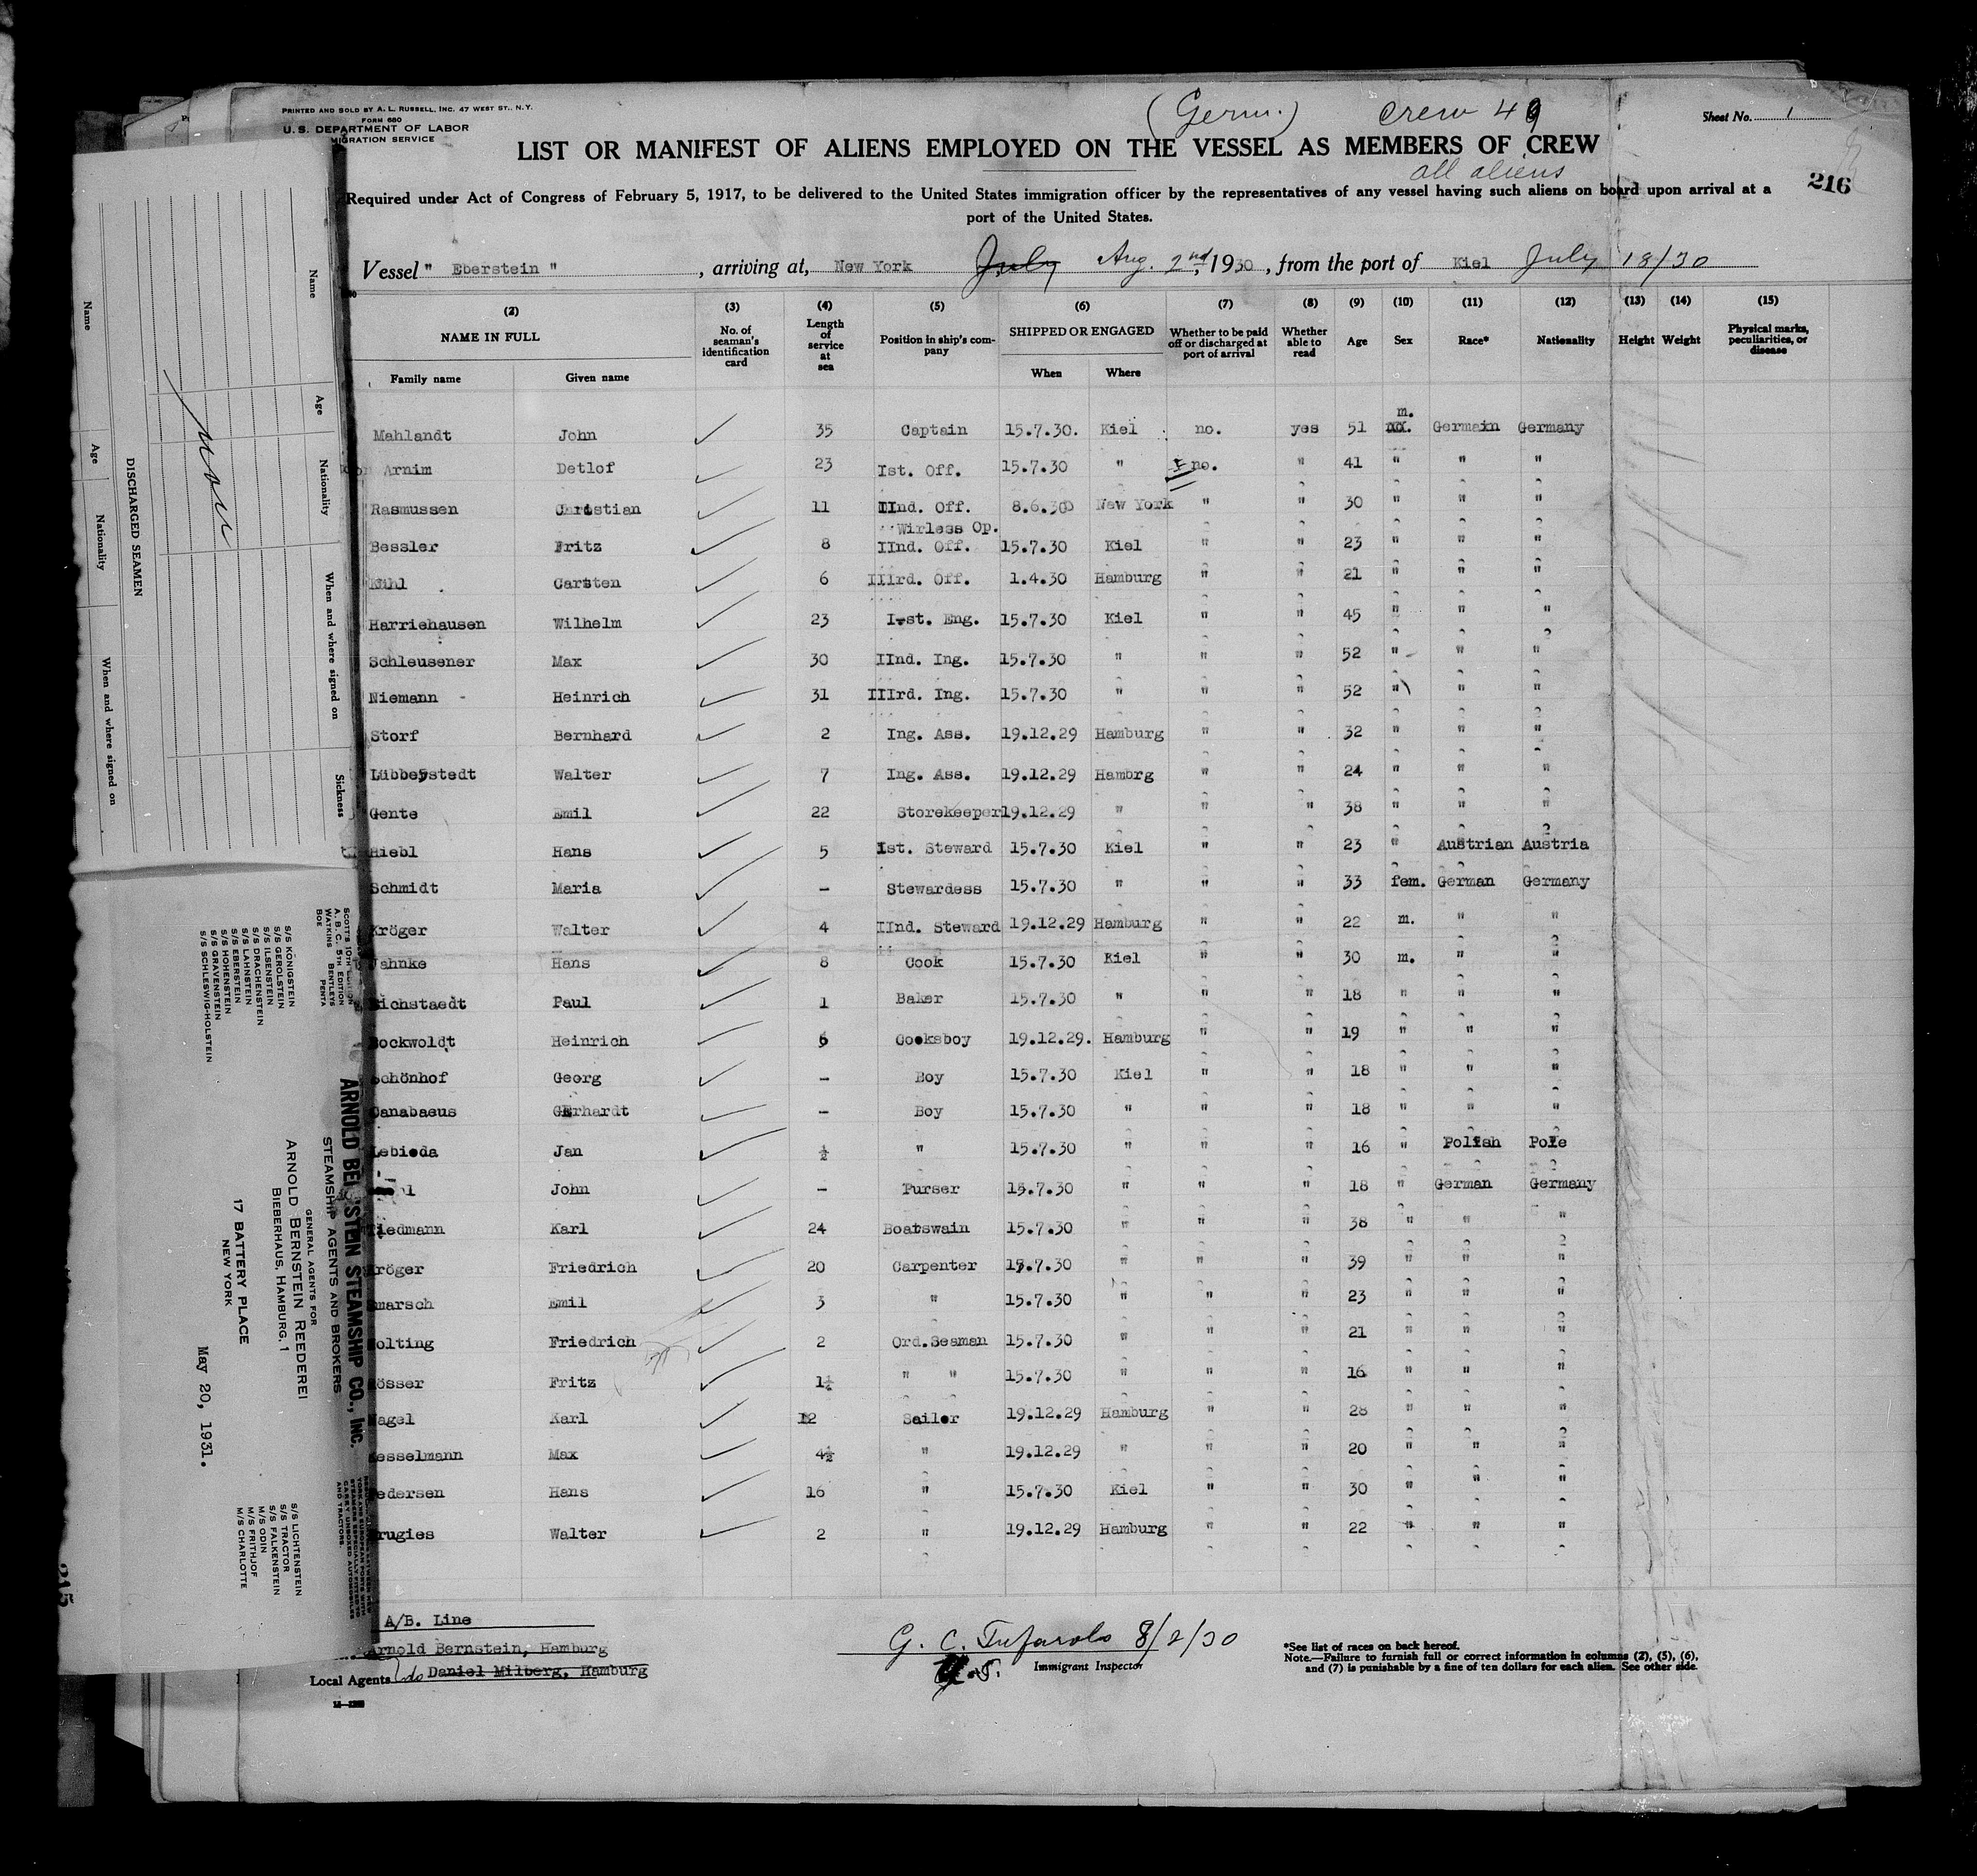 PRINTED AND SOLD BY A. L. RUSSELL, INC. 47 WEST ST., N.Y.
FORM 680
U. S. DEPARTMENT OF LABOR
MIGRATION SERVICE
(Germ.) crew 49
Sheet No. 1
LIST OR MANIFEST OF ALIENS EMPLOYED ON THE VESSEL AS MEMBERS OF CREW
all aliens
216
Required under Act of Congress of February 5, 1917, to be delivered to the United States immigration officer by the representatives of any vessel having such aliens on board upon arrival at a
port of the United States.
Vessel " Eberstein ", arriving at, New York July Aug. 2nd, 1930, from the port of Kiel July 18/30
(2) (3) (4) (5) (6) (7) (8) (9) (10) (11) (12) (13) (14) (15)
NAME IN FULL No. of seaman's identification card Length of service at sea Position in ship's company SHIPPED OR ENGAGED Whether to be paid off or discharged at port of arrival Whether able to read Age Sex Race* Nationality Height Weight Physical marks, peculiarities, or disease
Family name Given name When Where
Mahlandt John 35 Captain 15.7.30. Kiel no. yes 51 m. Germain Germany
Arnim Detlof 23 Ist. Off. 15.7.30 " no. " 41 " " "
Rasmussen Carstian 11 IInd. Off. 8.6.30 New York " " 30 " " "
Wirless Op.
Bessler Fritz 8 IInd. Off. 15.7.30 Kiel " " 23 " " "
Carsten 6 IIIrd. Off. 1.4.30 Hamburg " " 21 " " "
Harriehausen Wilhelm 23 I-st. Eng. 15.7.30 Kiel " " 45 " " "
Schleusener Max 30 IInd. Ing. 15.7.30 " " " 52 " " "
Niemann Heinrich 31 IIIrd. Ing. 15.7.30 " " " 52 " " "
Storf Bernhard 2 Ing. Ass. 19.12.29 Hamburg " " 32 " " "
Lübberstedt Walter 7 Ing. Ass. 19.12.29 Hambrg " " 24 " " "
Gente Emil 22 Storekeeper 19.12.29 " " " 38 " " "
Hiebl Hans 5 Ist. Steward 15.7.30 Kiel " " 23 " Austrian Austria
Schmidt Maria – Stewardess 15.7.30 " " " 33 fem. German Germany
Kröger Walter 4 IInd. Steward 19.12.29 Hamburg " " 22 m. " "
Jahnke Hans 8 Cook 15.7.30 Kiel " " 30 m. " "
ichstaedt Paul 1 Baker 15.7.30 " " " 18 " " "
ockwoldt Heinrich 6 Cooksboy 19.12.29. Hamburg " " 19 " " "
Schönhof Georg – Boy 15.7.30 Kiel " " 18 " " "
Canabaeus GErhardt – Boy 15.7.30 " " " 18 " " "
Lebioda Jan ½ " 15.7.30 " " " 16 " Polish Pole
John – Purser 15.7.30 " " " 18 " German Germany
Tiedmann Karl 24 Boatswain 15.7.30 " " " 38 " " "
Kröger Friedrich 20 Carpenter 15.7.30 " " " 39 " " "
marsch Emil 3 " 15.7.30 " " " 23 " " "
olting Friedrich 2 Ord.Seaman 15.7.30 " " " 21 " " "
össer Fritz 1½ " " 15.7.30 " " " 16 " " "
Nagel Karl 12 Sailor 19.12.29 Hamburg " " 28 " " "
esselmann Max 4½ " 19.12.29 " " " 20 " " "
edersen Hans 16 " 15.7.30 Kiel " " 30 " " "
rugies Walter 2 " 19.12.29 Hamburg " " 22 " " "
A/B. Line
Arnold Bernstein, Hamburg
Local Agents do Daniel Milberg, Hamburg
G. C. Tufarolo 8/2/30
Immigrant Inspector
*See list of races on back hereof.
Note.—Failure to furnish full or correct information in columns (2), (5), (6),
and (7) is punishable by a fine of ten dollars for each alien. See other side.
DISCHARGED SEAMEN
Name Age Nationality When and where signed on Sickness
Name Age Nationality When and where signed on
SCOTT'S 10TH EDITION
A. B. C. 5TH EDITION
WATKINS BENTLEYS
BOE PENTA
S/S KÖNIGSTEIN
S/S GEROLSTEIN
S/S ILSENSTEIN
S/S DRACHENSTEIN
S/S LAHNSTEIN
S/S EBERSTEIN
S/S HOHENSTEIN
S/S GRAVENSTEIN
S/S SCHLESWIG-HOLSTEIN
ARNOLD BERNSTEIN STEAMSHIP CO., INC.
STEAMSHIP AGENTS AND BROKERS
GENERAL AGENTS FOR
ARNOLD BERNSTEIN REEDEREI
BIEBERHAUS, HAMBURG, 1
17 BATTERY PLACE
NEW YORK
May 20, 1931.
S/S LICHTENSTEIN
S/S TRACTOR
S/S FALKENSTEIN
M/S ODIN
M/S FRITHJOF
M/S CHARLOTTE
215